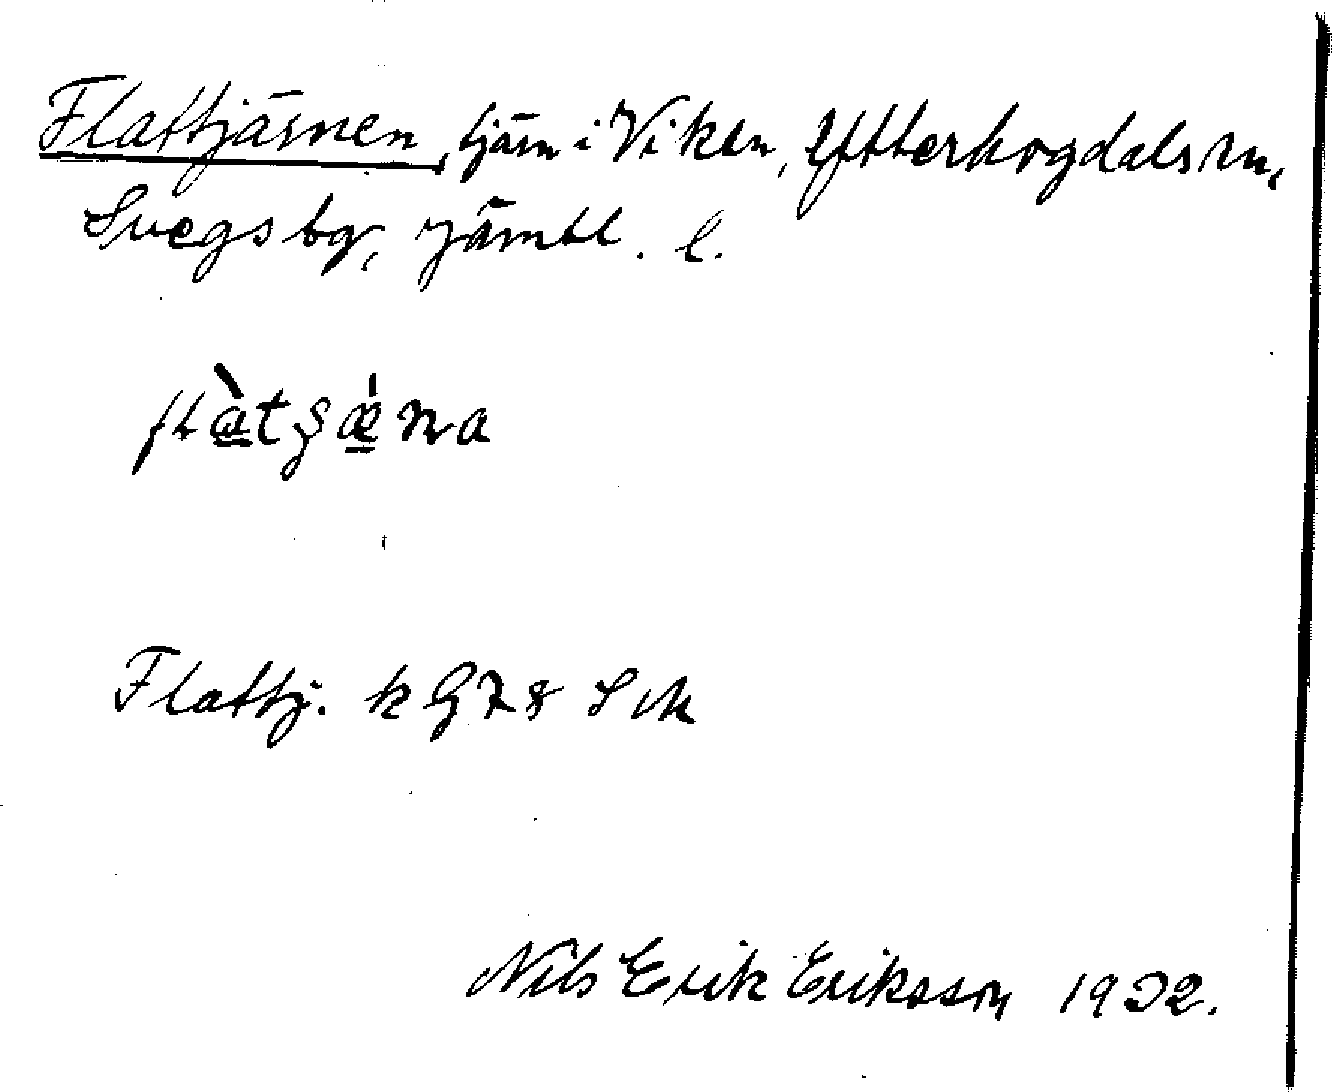 Flattjärnen, tjärn i Viken, Ytterhogdals sn,
Svegs tg, Jämtl. l.
flàtʂǽna
Flattj. k G 78 Sek
Nils Erik Eriksson 1932.